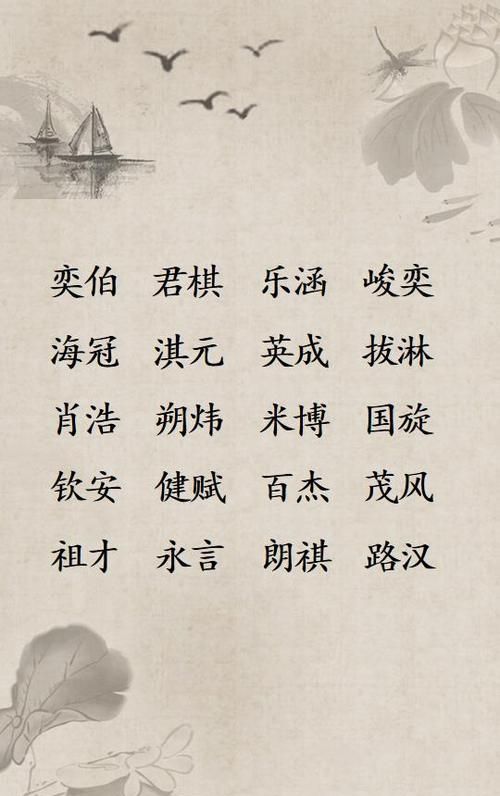 奕伯 君棋 乐涵 峻奕
海冠 淇元 英成 拔淋
肖浩 朔炜 米博 国旋
钦安 健赋 百杰 茂风
祖才 永言 朗祺 路汉